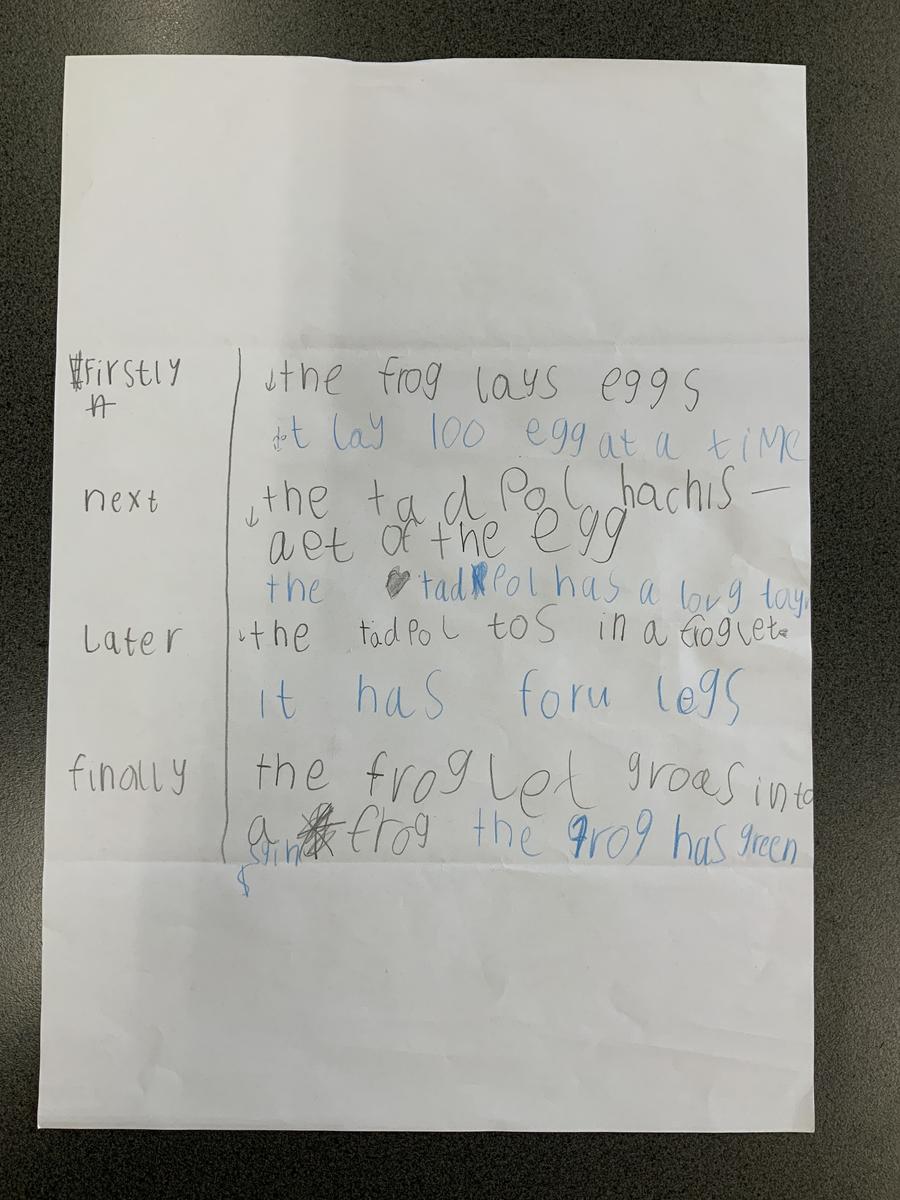 Firstly the frog lays eggs
it lay 100 egg at a time
next the tadPol hachis
aet of the egg
the tadPol has a long tay
Later the tadPol tos in a froglet.
it has foru legs
finally the froglet groes into
a frog the frog has green
sgin